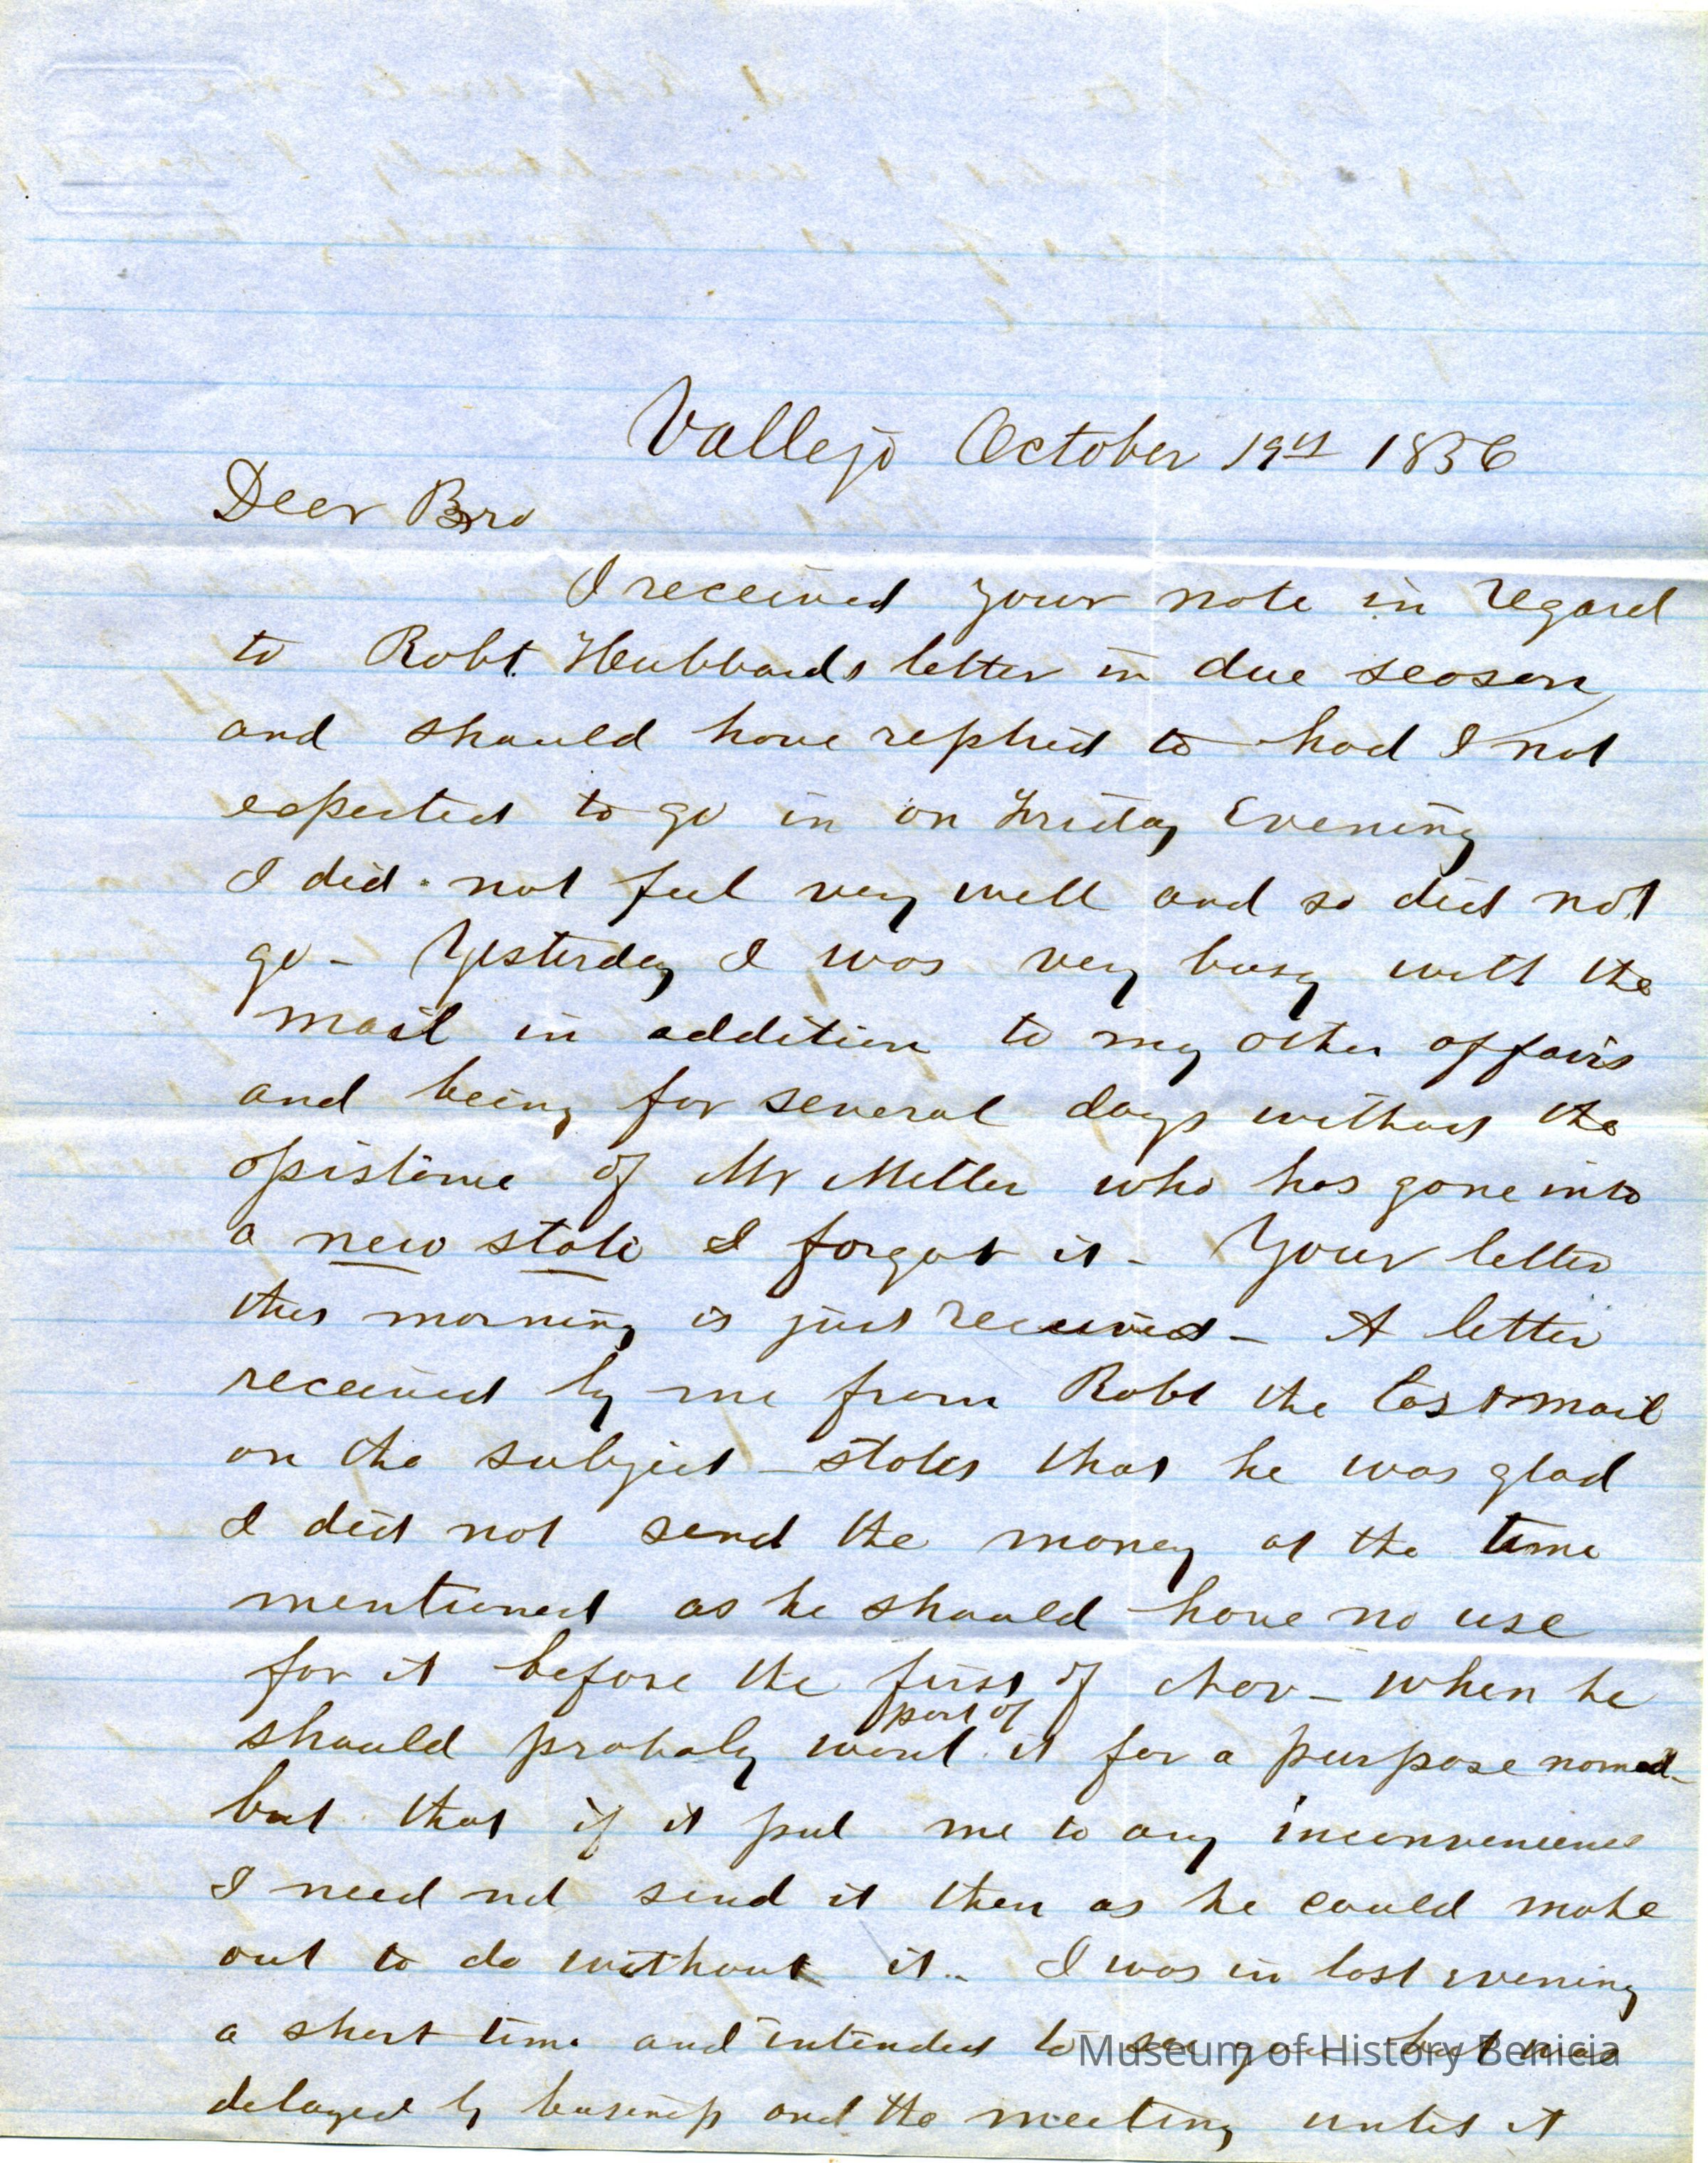 Vallejo October 19th 1856
Deer Bro
I received your note in regard
to Robt. Hubbards letter in due season
and should have replied to had I not
expected to go in on Friday Evening
I did not feel very well and so did not
go - Yesterday I was very busy with the
mail in addition to my other affairs
and being for several days without the
of Mr Miller who has gone into
a new state I forgot it - Your letter
this morning is just received - A letter
received by me from Robt the last mail
on the subject - states that he was glad
I did not send the money at the time
mentioned as he should have no use
for it before the first of Nov - when he
part of
should probaly want it for a purpose named -
but that if it put me to any inconvenience
I need not send it then as he could make
out to do without it - I was in last evening
a short time and intended to see you but was
delayed by business and the meeting until it
Museum of History Benicia